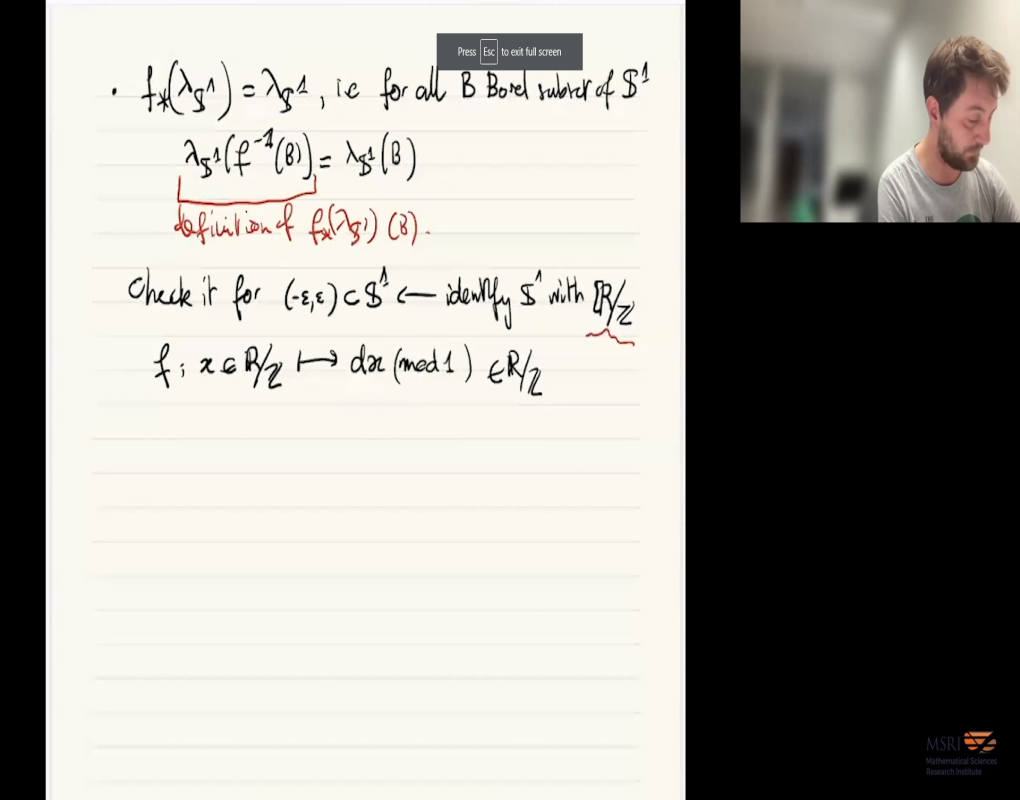 Press Esc to exit full screen
• f_*(λ_{𝕊^1}) = λ_{𝕊^1}, i.e for all B Borel subset of 𝕊^1
λ_{𝕊^1}(f^{-1}(B)) = λ_{𝕊^1}(B)
definition of f_*(λ_{𝕊^1})(B).
Check it for (-ε,ε) ⊂ 𝕊^1 ← identify 𝕊^1 with ℝ/ℤ
f : x ∈ ℝ/ℤ ↦ dx (mod 1) ∈ ℝ/ℤ
THE
MSRI
Mathematical Sciences
Research Institute